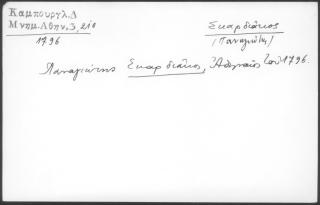 Καμπουργλ.Δ
Μνημ.Αθην,3,210
1796
Σκαρδιάκος
(Παναγιώτης)
Παναγιώτης Σκαρδιάκος, Ἀθηναῖος τοῦ 1796.